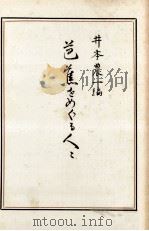 井本農一編
芭蕉をめぐる人々